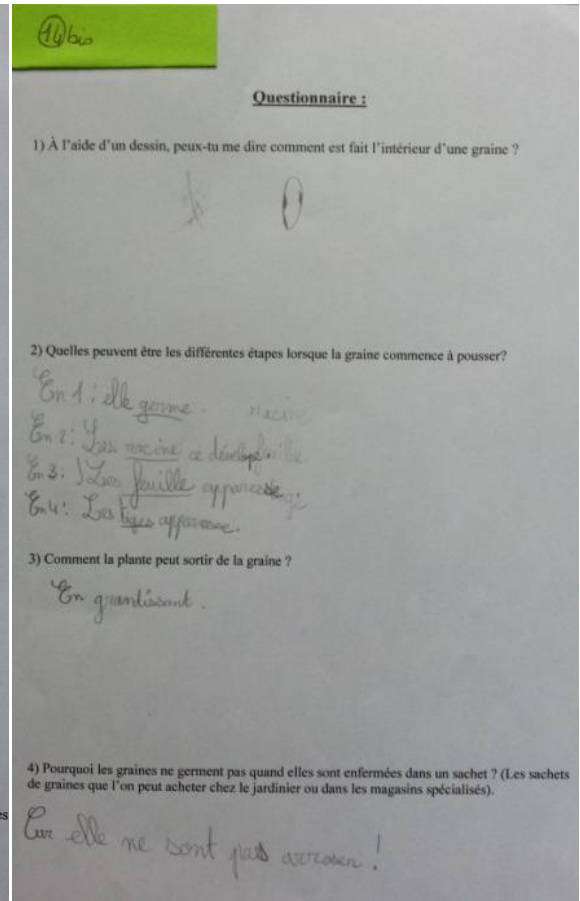 14 bis
Questionnaire :
1) À l'aide d'un dessin, peux-tu me dire comment est fait l'intérieur d'une graine ?
2) Quelles peuvent être les différentes étapes lorsque la graine commence à pousser?
En 1 : elle germe. racine
En 2 : Les racine ce dévelope
En 3 : Les feuille
En 4 : Les tiges
3) Comment la plante peut sortir de la graine ?
En grantissant.
4) Pourquoi les graines ne germent pas quand elles sont enfermées dans un sachet ? (Les sachets
de graines que l'on peut acheter chez le jardinier ou dans les magasins spécialisés).
Car elle ne sont pas arroser !